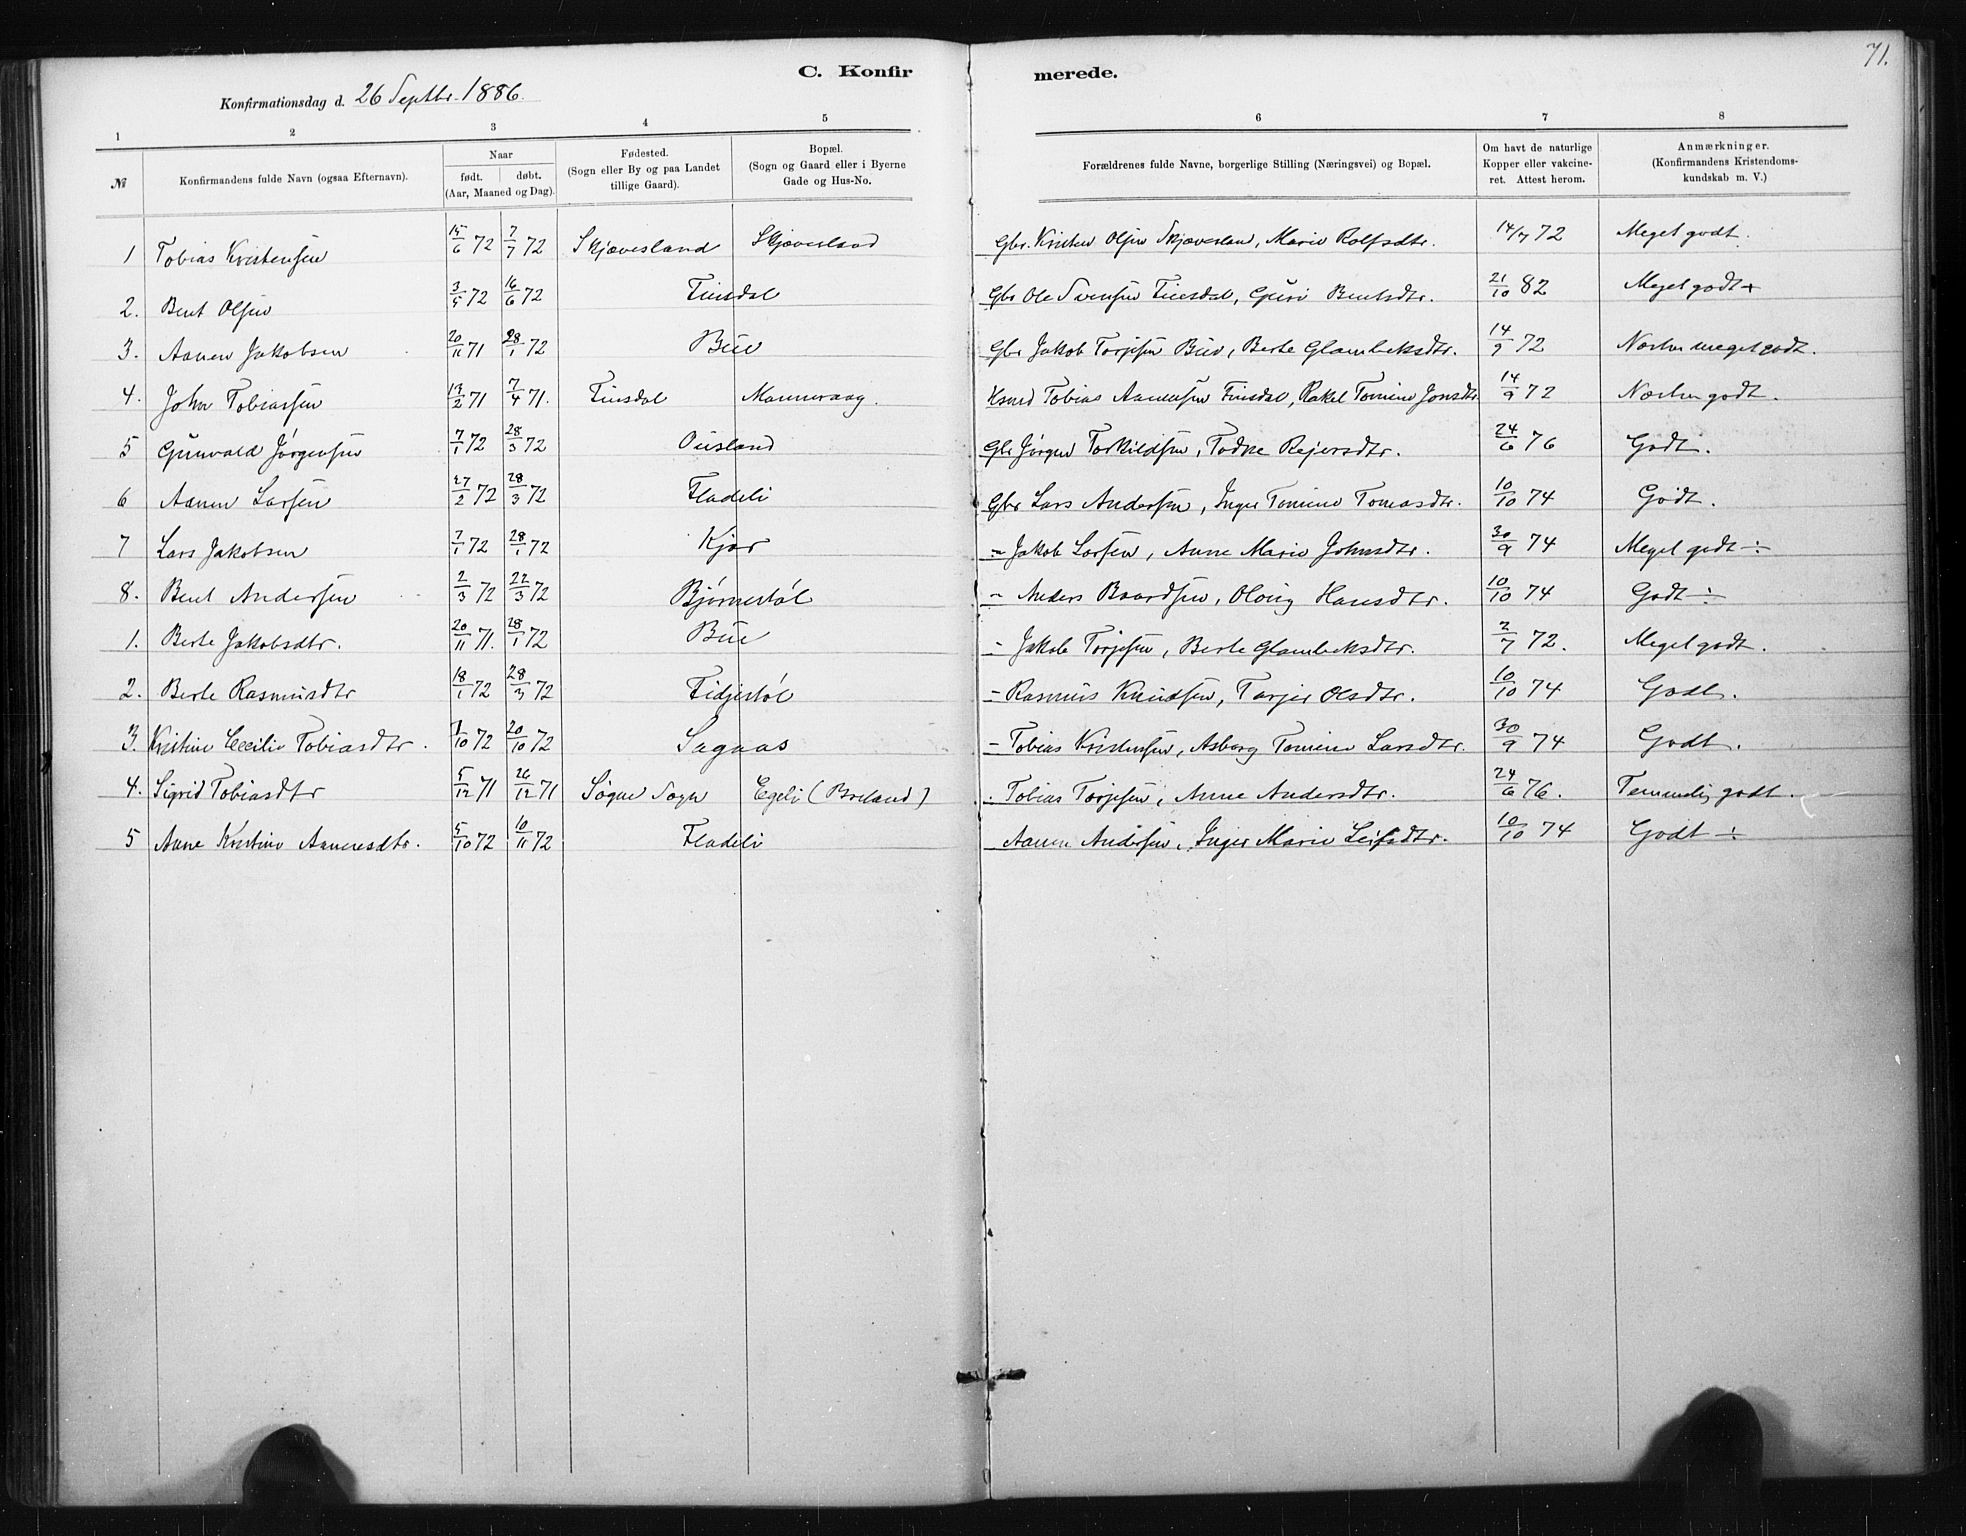 71.
C. Konfir merede.
Konfirmationsdag d. 26 Septbr. 1886.
1 2 3 4 5 6 7 8
№ Konfirmandens fulde Navn (ogsaa Efternavn). Naar født. døbt. (Aar, Maaned og Dag). Fødested. (Sogn eller By og paa Landet tillige Gaard). Bopæl. (Sogn og Gaard eller i Byerne Gade og Hus-No. Forældrenes fulde Navne, borgerlige Stilling (Næringsvei) og Bopæl. Om havt de naturlige Kopper eller vakcineret. Attest herom. Anmærkninger. (Konfirmandens Kristendomskundskab m. V.)
1 Tobias Kristensen 15/6 72 7/7 72 Skjævesland Skjævesland Gbr. Kristen Olsen Skjævesland, Marie Rolfsdtr. 14/7 72 Meget godt.
2. Bent Olsen 3/5 72 16/6 72 Finsdal Gbr Ole Svensen Finsdal, Guri Bentsdtr. 21/10 82 Meget godt+
3. Aanen Jakobsen 20/11 71 28/1 72 Bue Gbr Jakob Torjesen Bue, Berte Glambeksdtr. 14/9 72 Næsten meget godt.
4. John Tobiassen 13/2 71 7/4 71. Finsdal Manneraag. Hsmd Tobias Aanensen Finsdal, Rakel Tomine Jonsdtr 14/9 72 Næsten godt.
5 Gunvald Jørgensen 7/1 72 28/3 72 Ousland Gbr Jørgen Torkildsen, Todne Rejersdtr. 24/6 76 Godt.
6 Aanen Larsen 27/2 72 28/3 72 Fladeli Gbr Lars Andersen, Inger Tomine Tomasdtr. 10/10 74 Godt.
7 Lars Jakobsen 7/1 72 28/1 72 Kjær - Jakob Larsen, Anne Marie Johnsdtr. 30/9 74 Meget godt ÷
8. Bent Andersen 2/3 72 22/3 72 Bjørnestøl - Anders Baardsen, Oloug Hansdtr. 10/10 74 Godt ÷
1. Berte Jakobsdtr. 20/11 71. 28/1 72 Bue - Jakob Torjesen, Berte Glambeksdtr. 2/7 72. Meget godt.
2. Berte Rasmusdtr 18/1 72 28/3 72 Fidjestøl - Rasmus Knudsen, Torjer Olsdtr. 10/10 74 Godt.
3. Kristine Cecilie Tobiasdtr. /10 72 20/10 72 Sagaas - Tobias Kristensen, Asborg Tomine Larsdtr. 30/9 74 Godt.
4. Sigrid Tobiasdtr 5/12 71 26/12 71 Søgne Sogn Egeli (Breland) - Tobias Torjesen, Anne Andersdtr. 24/6 76. Temmelig godt.
5 Anne Kristine Aanensdtr. 5/10 72 10/11 72 Fladeli Aanen Andersen, Inger Marie Leifsdtr. 10/10 74 Godt ÷